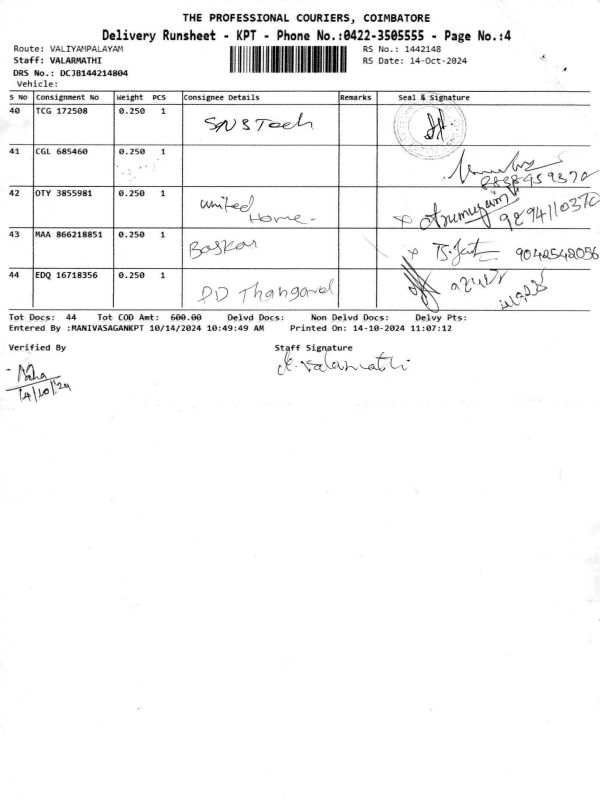 THE PROFESSIONAL COURIERS, COIMBATORE
Delivery Runsheet - KPT - Phone No.:0422-3505555 - Page No.:4
Route: VALIYAMPALAYAM RS No.: 1442148
Staff: VALARMATHI RS Date: 14-Oct-2024
DRS No.: DCJB144214804
Vehicle:
S No Consignment No Weight PCS Consignee Details Remarks Seal & Signature
40 TCG 172508 0.250 1 SNS Tech
41 CGL 685460 0.250 1
42 OTY 3855981 0.250 1 United Home - x Arumugam 9894110370
43 MAA 866218851 0.250 1 Baskar x 9042542056
44 EDQ 16718356 0.250 1 PD Thangavel
Tot Docs: 44 Tot COD Amt: 600.00 Delvd Docs: Non Delvd Docs: Delvy Pts:
Entered By :MANIVASAGANKPT 10/14/2024 10:49:49 AM Printed On: 14-10-2024 11:07:12
Verified By Staff Signature
14/10/24